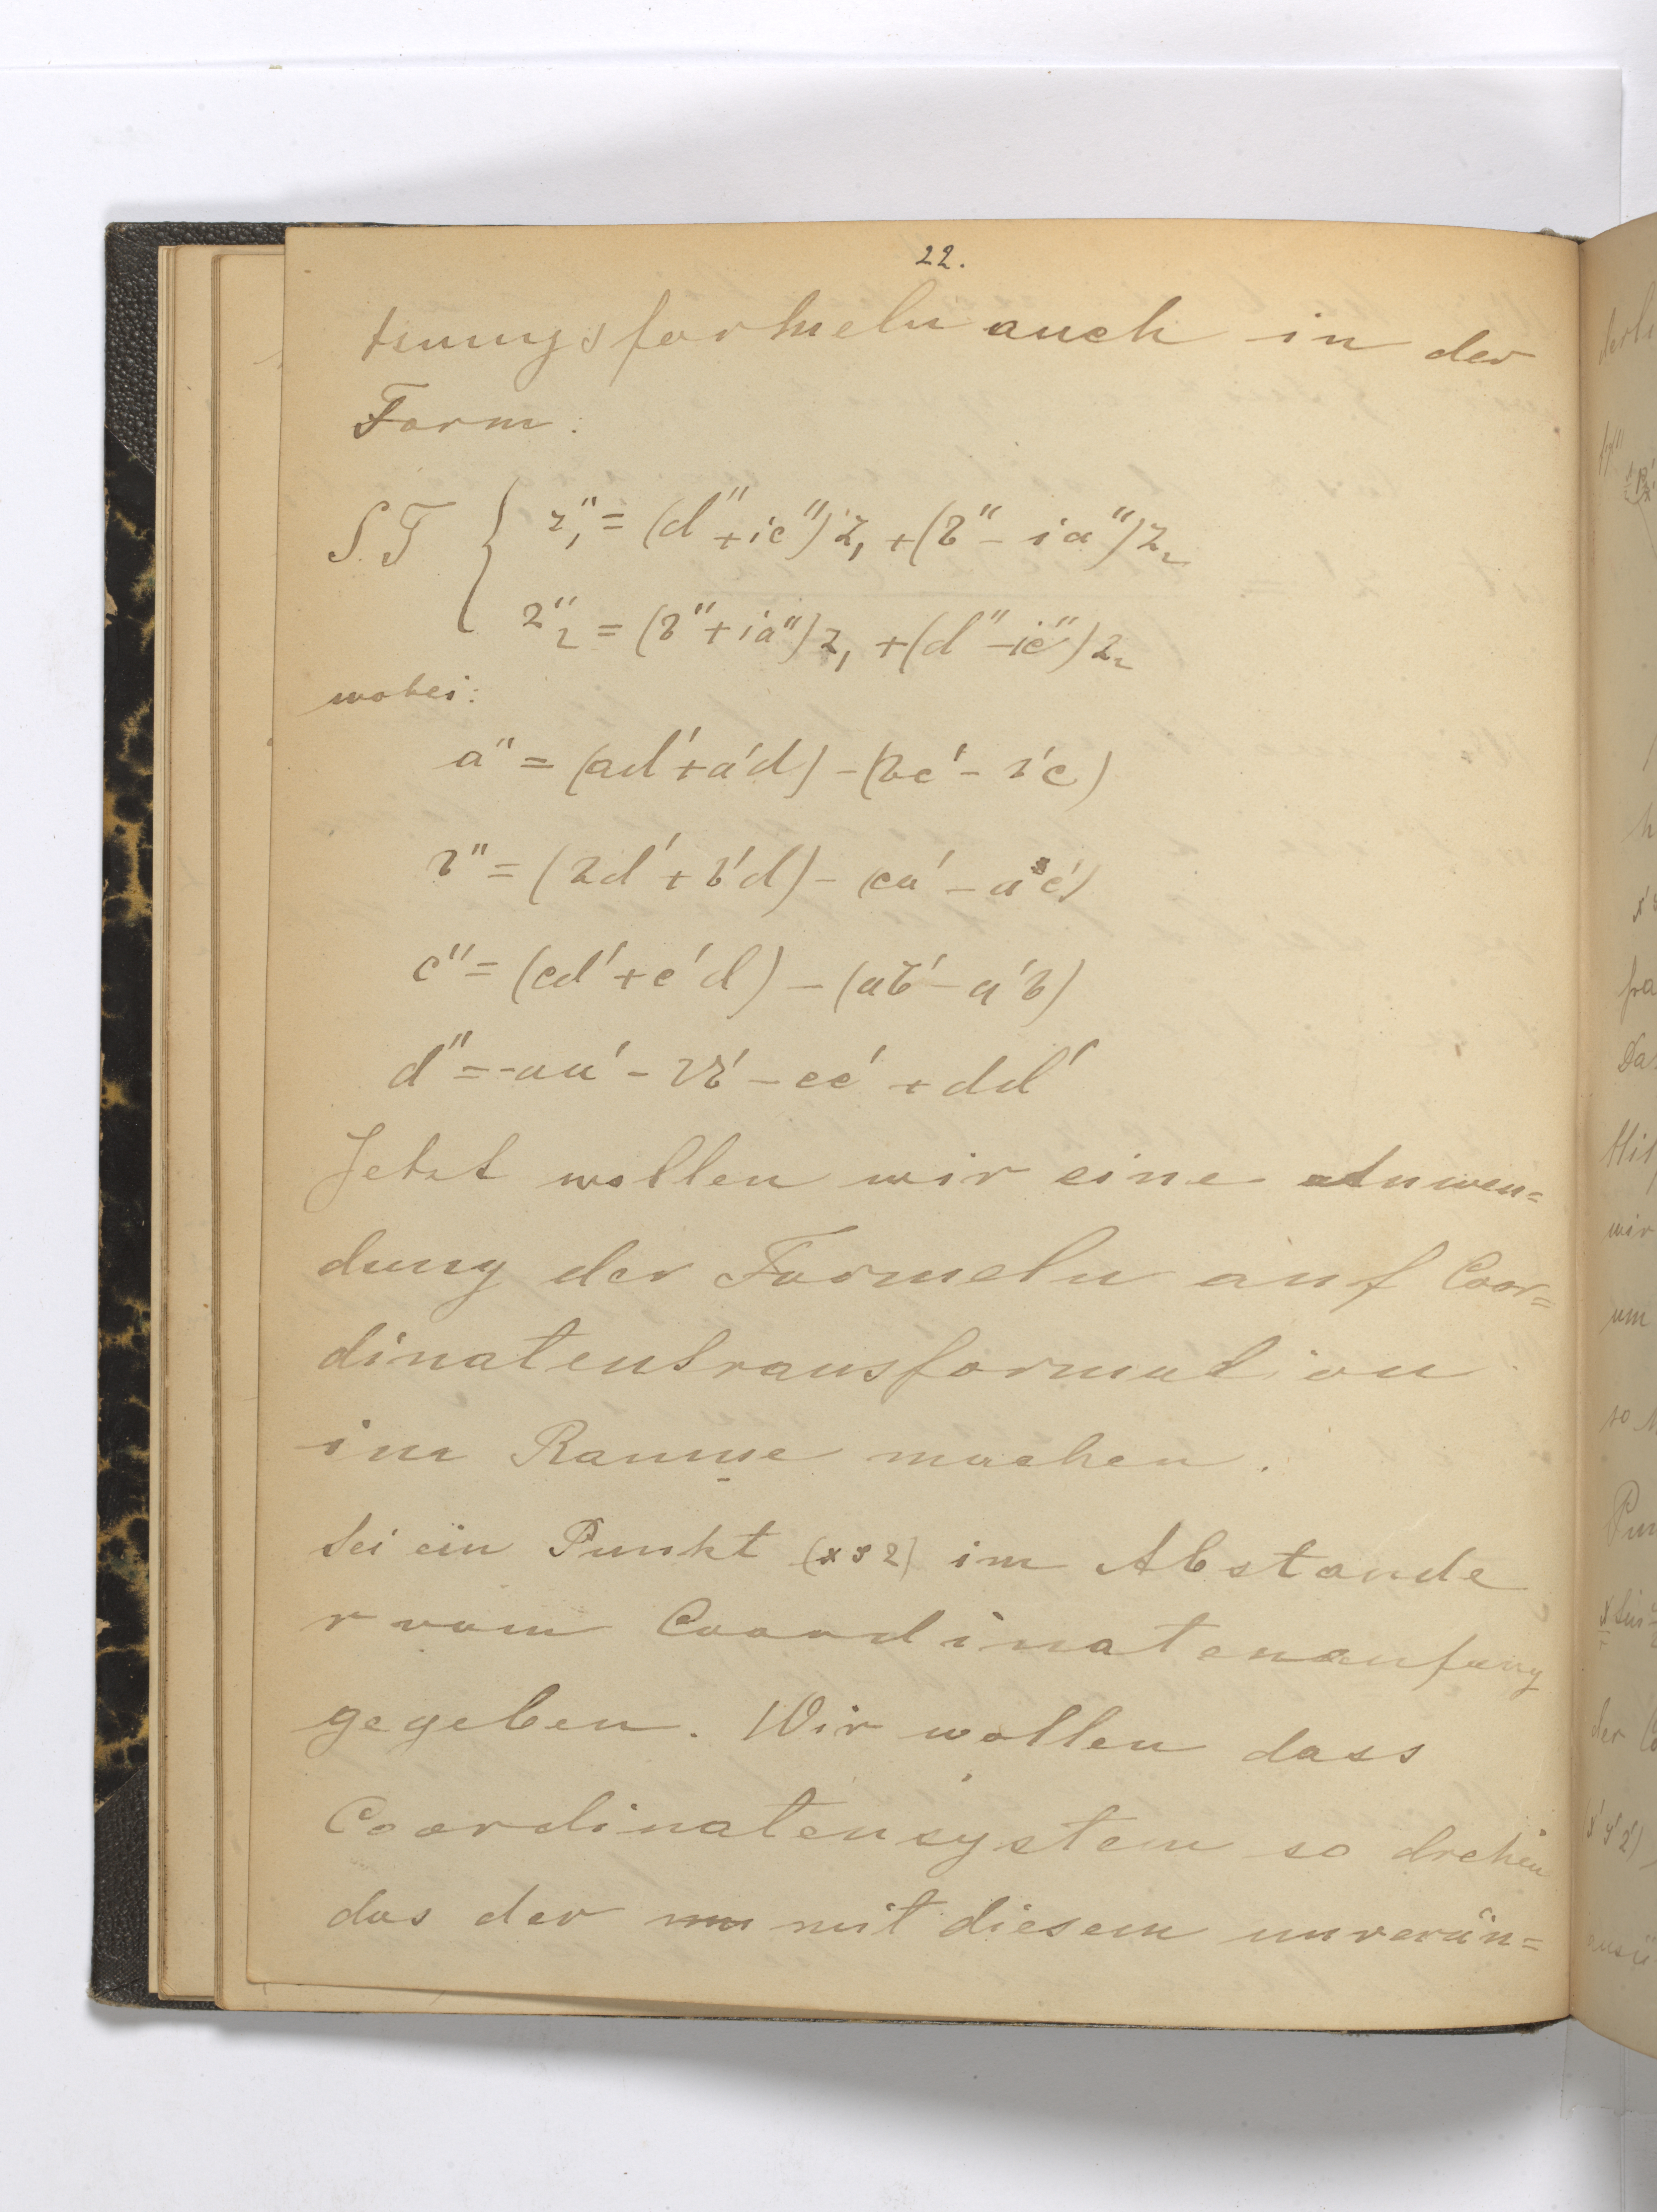 22.
tenungsformeln auch in der
Form:
S.T { z₁" = (d" + ic")z₁ + (b" - ia")z₂
z"₂ = (b" + ia")z₁ + (d" - ic")z₂
wobei:
a" = (ad' + a'd) - (bc' - b'c)
b" = (bd' + b'd) - (ca' - ac')
c" = (cd' + c'd) - (ab' - a'b)
d" = -aa' - bb' - cc' + dd'
Jetzt wollen wir eine Anwen=
dung der Formeln auf Coor=
dinatentransformation
im Raume machen.
Sei ein Punkt (x y z) im Abstande
r vom Coordinatenanfang
gegeben. Wir wollen dass
Coordinatensystem so drehen
das der mit diesem unverän=